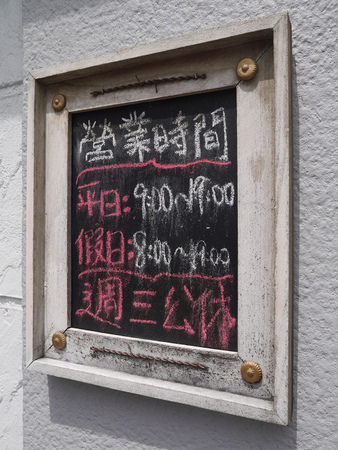 營業時間
平日:9:00~19:00
假日:8:00~19:00
週三公休